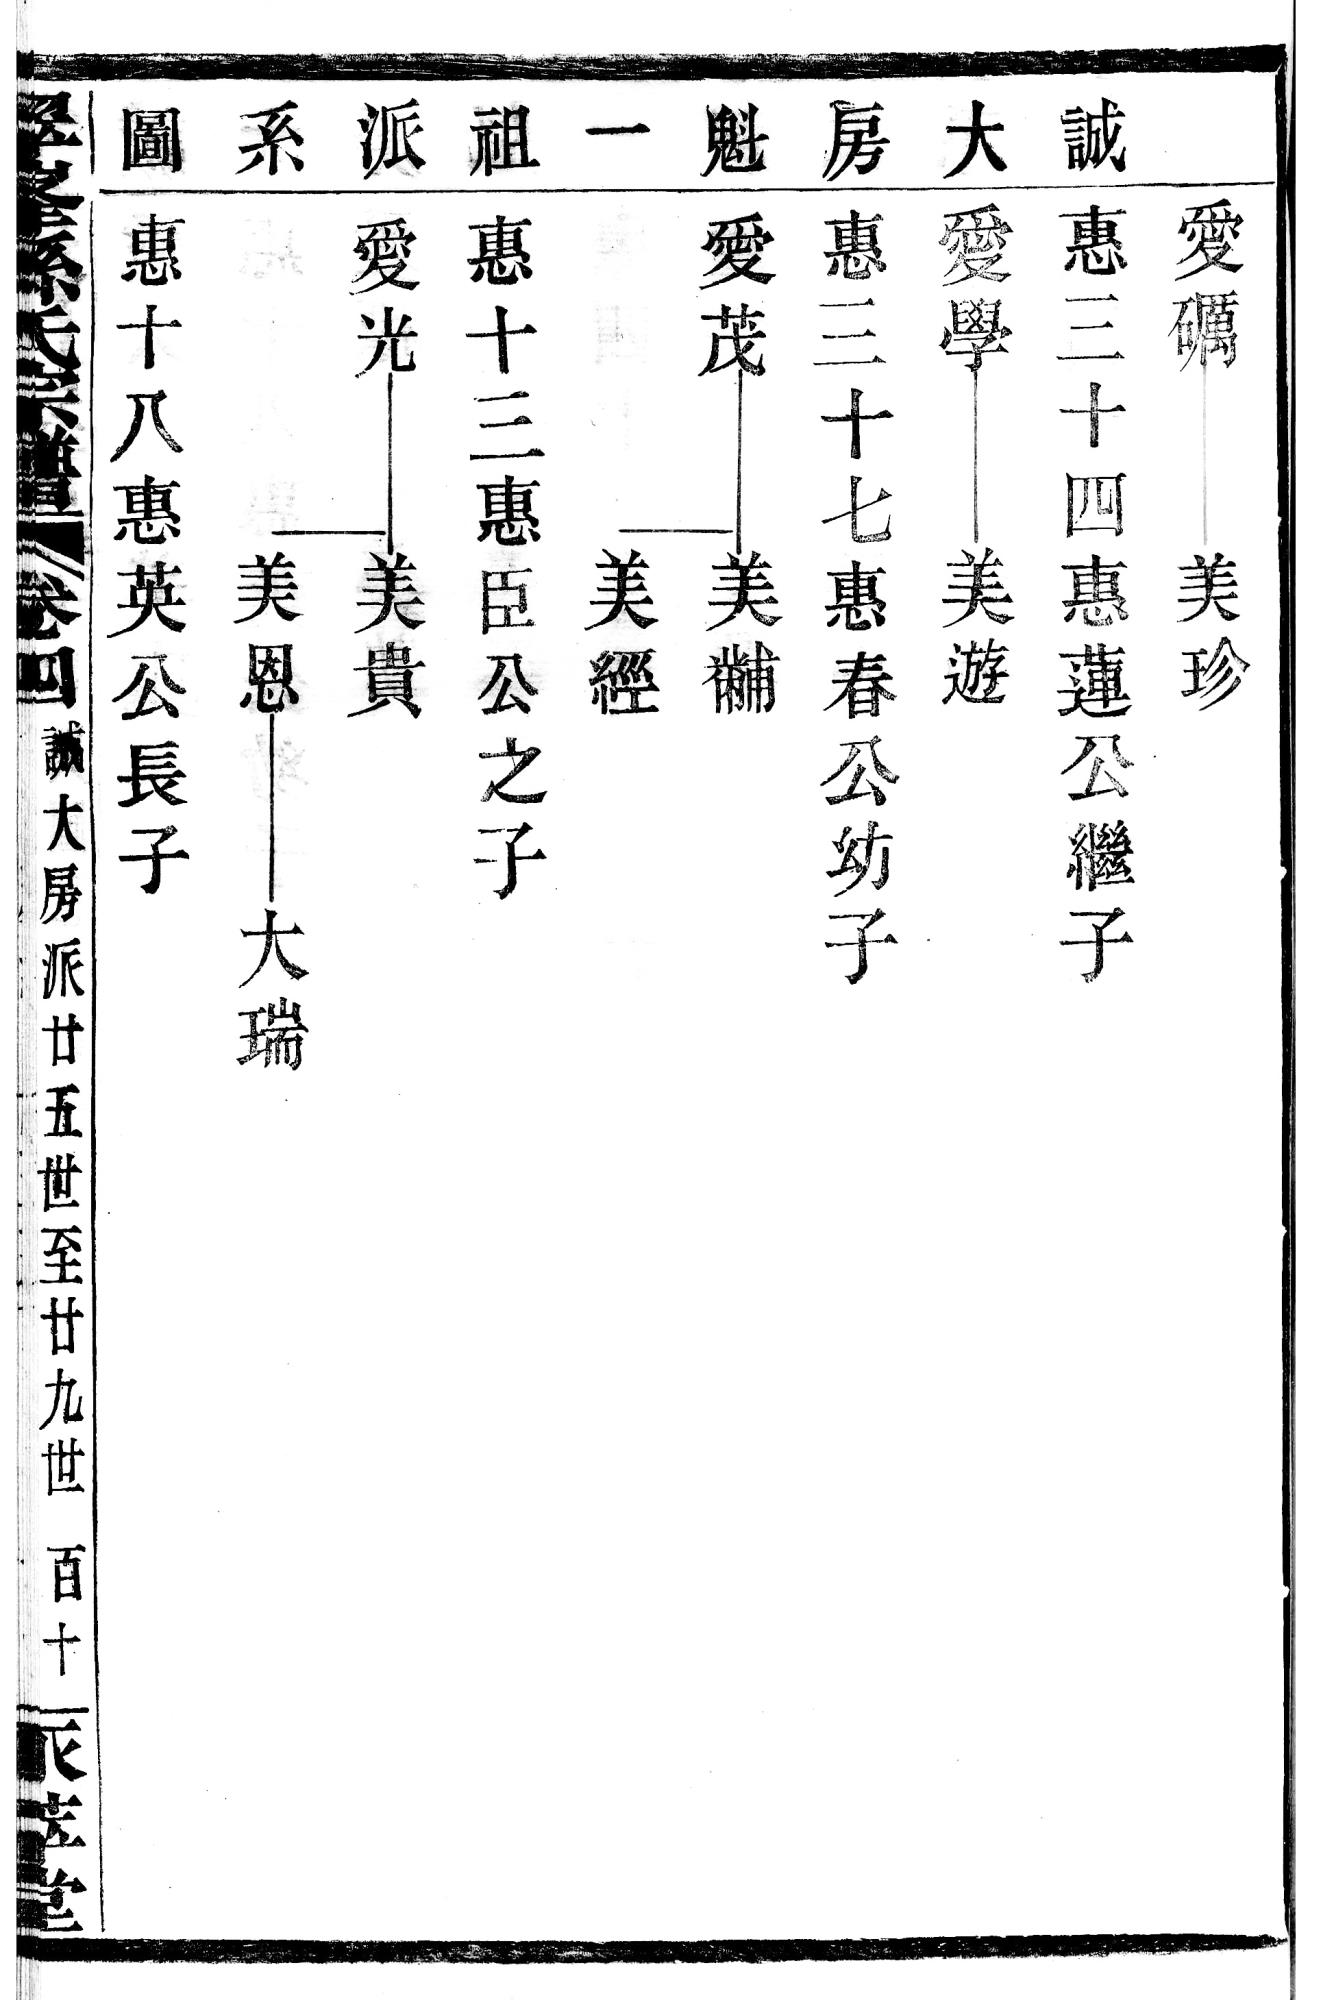 誠大房魁一祖派系圖
愛礪
美珍
惠三十四惠蓮公繼子
愛學
美遊
惠三十七惠春公幼子
愛茂
美黼
美經
惠十三惠臣公之子
愛光
美貴
美恩
大瑞
惠十八惠英公長子
氏宗譜
卷四
誠大房派廿五世至廿九世
百十
堂